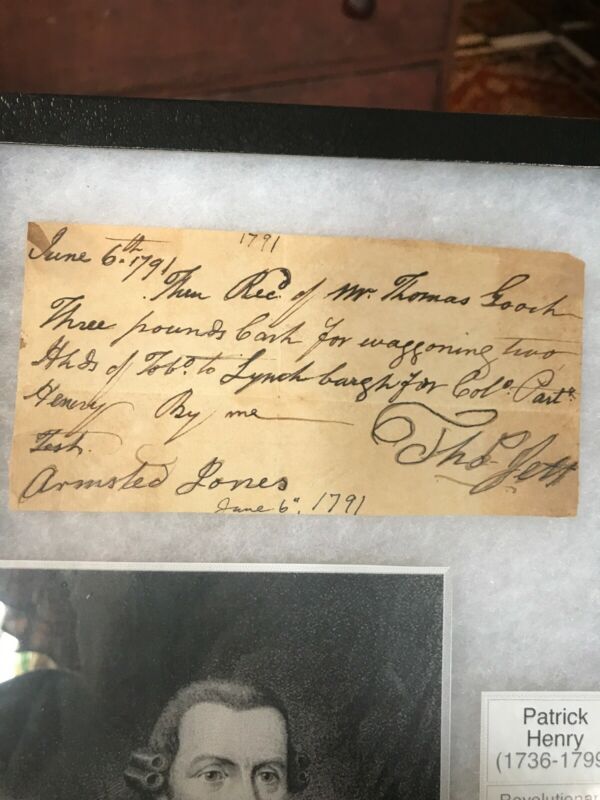 1791
June 6.th 1791
Then Recd of Mr. Thomas Gooch
Three pounds Cash for waggoning two
Hhds of Tobo. to Lynchburgh for Colo. Patrk.
Henry By me
Thos Jett
Test.
Armsted Jones
June 6th. 1791
Patrick
Henry
(1736-1799
Revolutionar